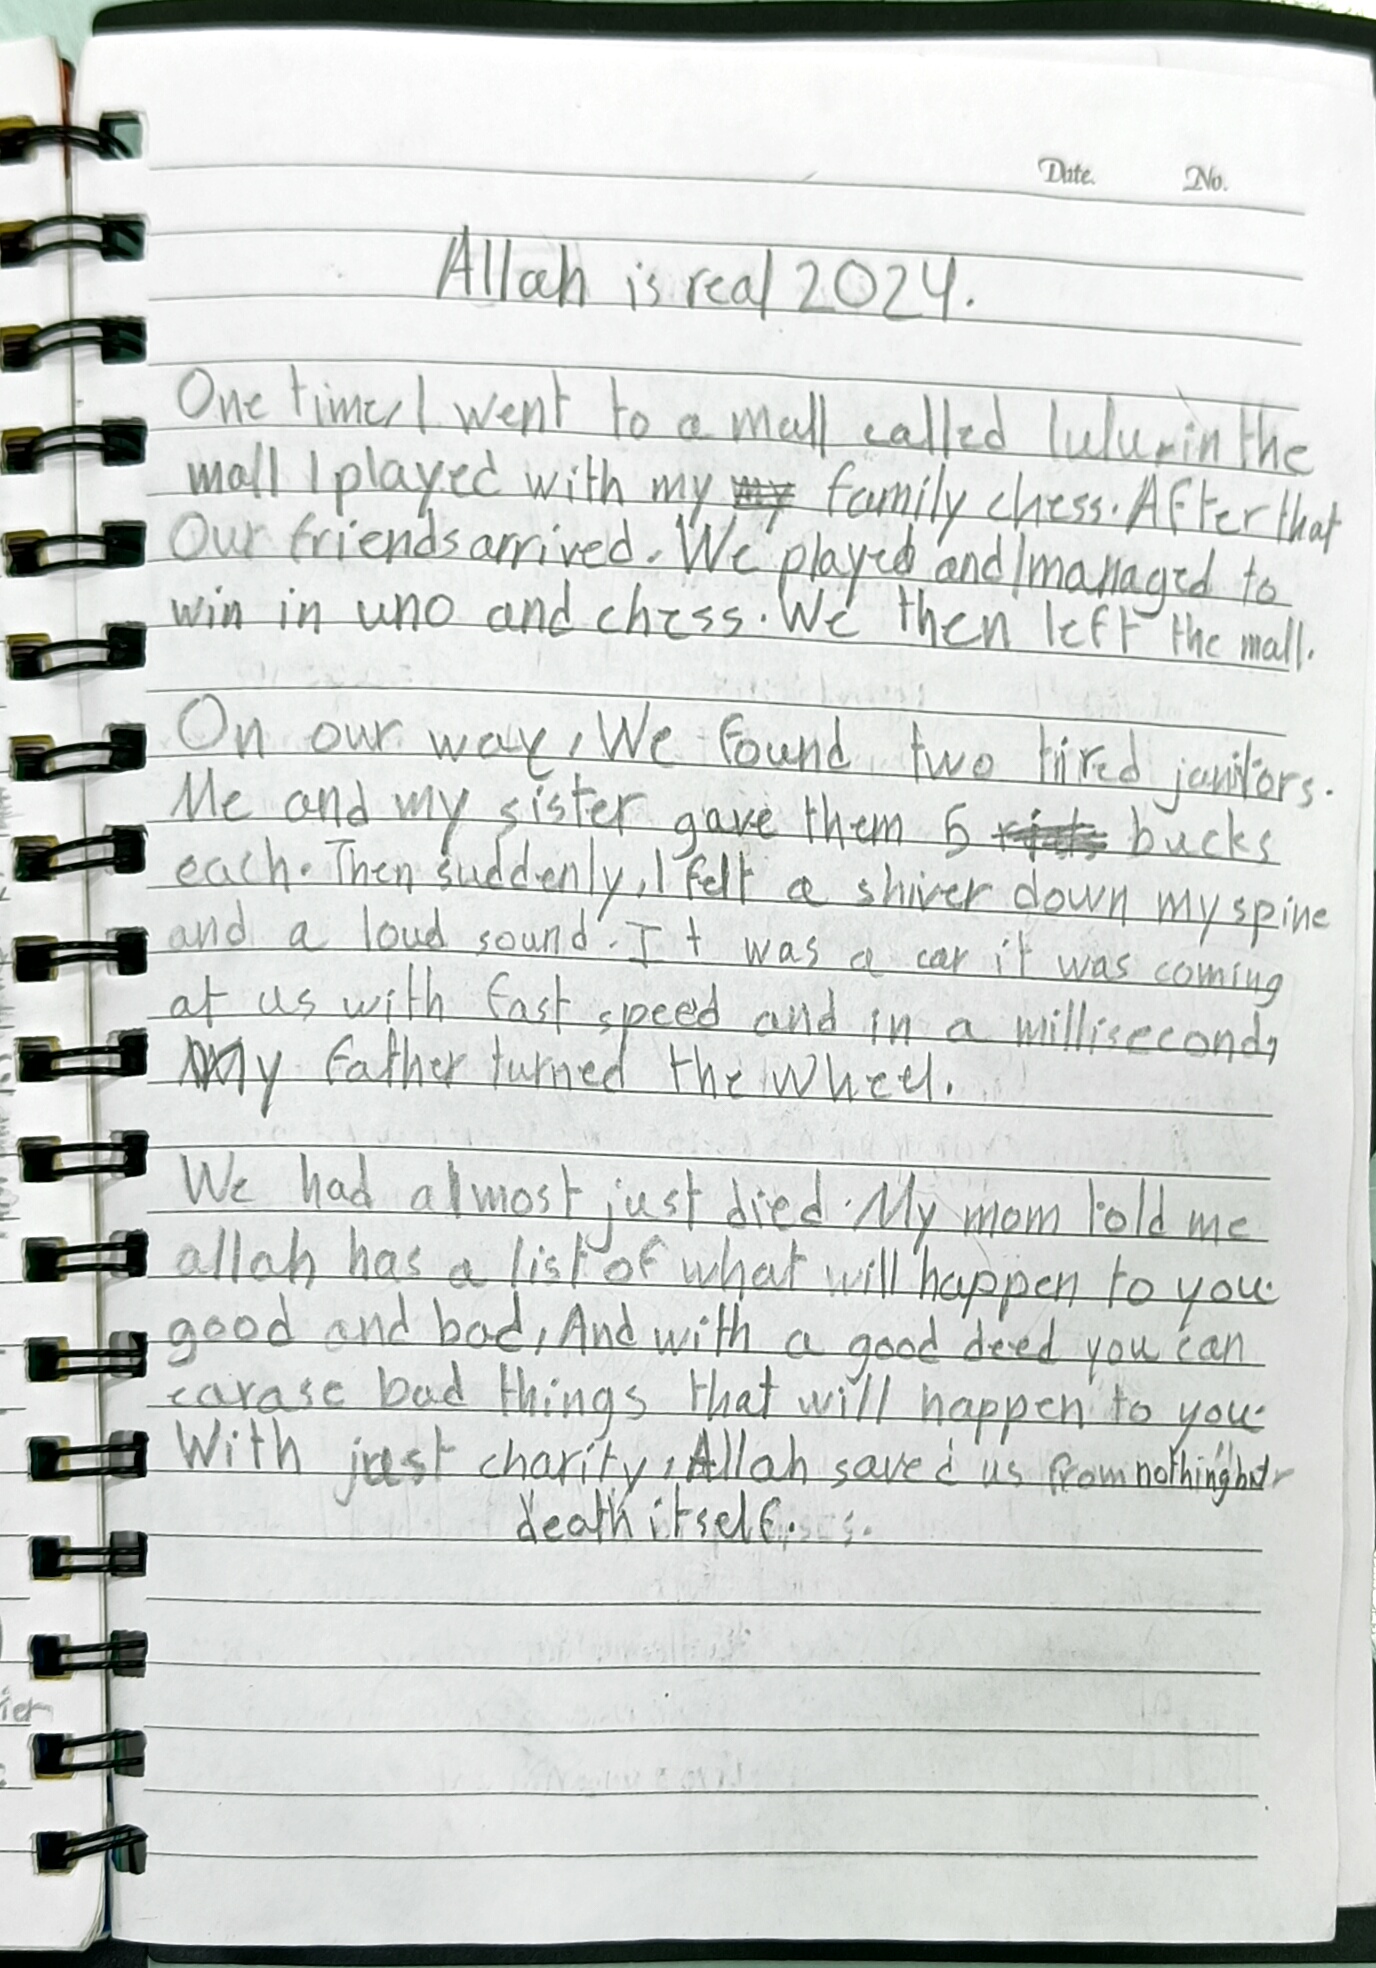 Date. No.
Allah is real 2024.
One time, I went to a mall called lulu. in the
mall I played with my family chess. After that
Our friends arrived. We played and I managed to
win in uno and chess. We then left the mall.
On our way, We found two tired janitors.
Me and my sister gave them 5 bucks
each. Then suddenly, I felt a shiver down my spine
and a loud sound. It was a car it was coming
at us with fast speed and in a millisecond,
My father turned the wheel.
We had almost just died. My mom told me
allah has a list of what will happen to you.
good and bad, And with a good deed you can
earase bad things that will happen to you.
With just charity, Allah saved us from nothing but
death itself.